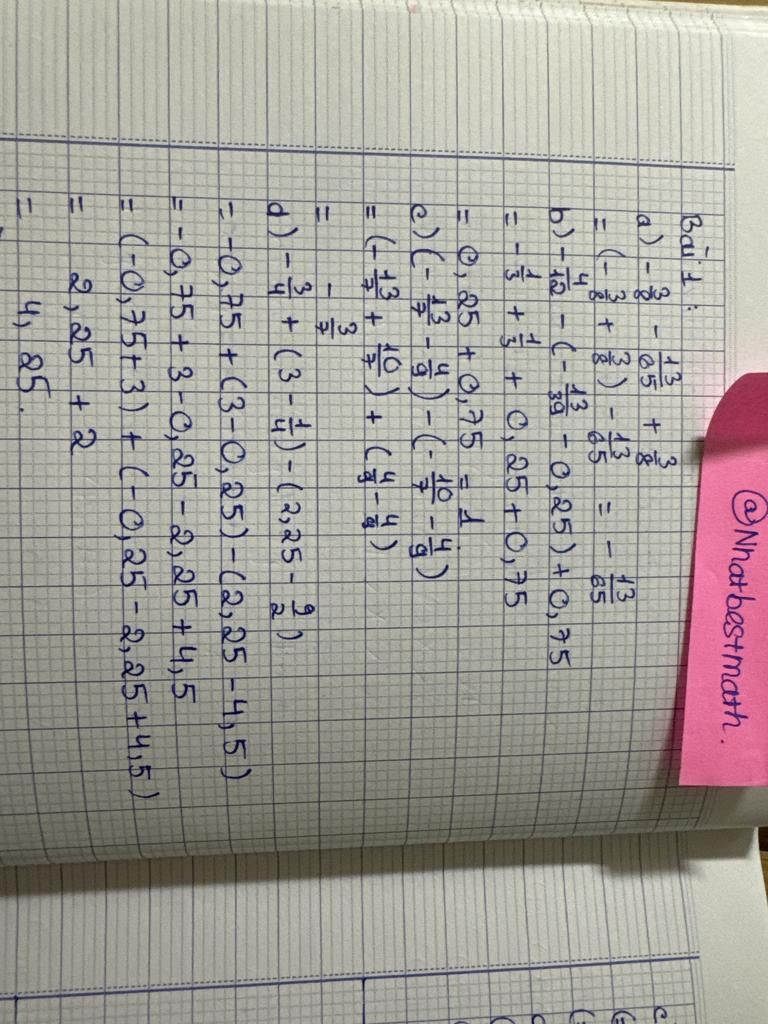 @Nhatbestmath.
Bài 1:
a) -3/8 - 13/65 + 3/8
= (-3/8 + 3/8) - 13/65 = -13/65
b) -4/12 - (-13/39 - 0,25) + 0,75
= -1/3 + 1/3 + 0,25 + 0,75
= 0,25 + 0,75 = 1.
c) (-13/7 - 4/9) - (-10/7 - 4/9)
= (-13/7 + 10/7) + (4/9 - 4/9)
= -3/7
d) -3/4 + (3 - 1/4) - (2,25 - 9/2)
= -0,75 + (3 - 0,25) - (2,25 - 4,5)
= -0,75 + 3 - 0,25 - 2,25 + 4,5
= (-0,75 + 3) + (-0,25 - 2,25 + 4,5)
= 2,25 + 2
= 4,25.